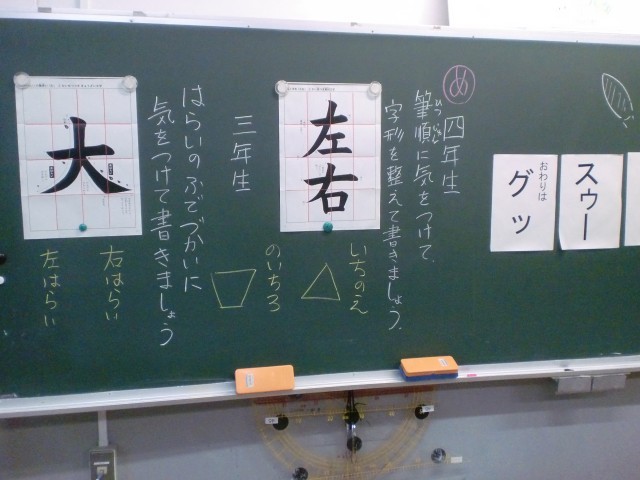 スゥー
おわりは
グッ
め
四年生
筆順に気をつけて、
ひつじゅん
字形を整えて書きましょう。
左右
いちのえ
のいちろ
三年生
はらいのふでづかいに
気をつけて書きましょう
大
右はらい
左はらい